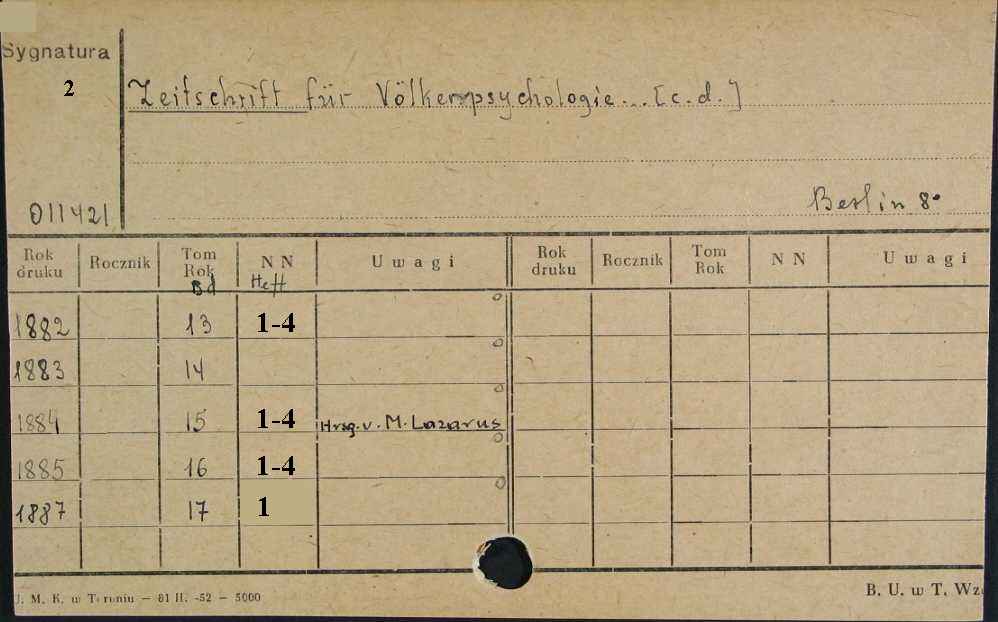 Sygnatura
2
Zeitschrift für Völkerpsychologie... [c.d.]
011421
Berlin 8°
Rok druku Rocznik Tom Rok NN Uwagi Rok druku Rocznik Tom Rok NN Uwagi
Bd Heft
1882 13 1-4
1883 14
1884 15 1-4 Hrsg. v. M. Lazarus
1885 16 1-4
1887 17 1
U. M. K. w Toruniu — 81 II. -52 — 5000
B. U. w T. Wz